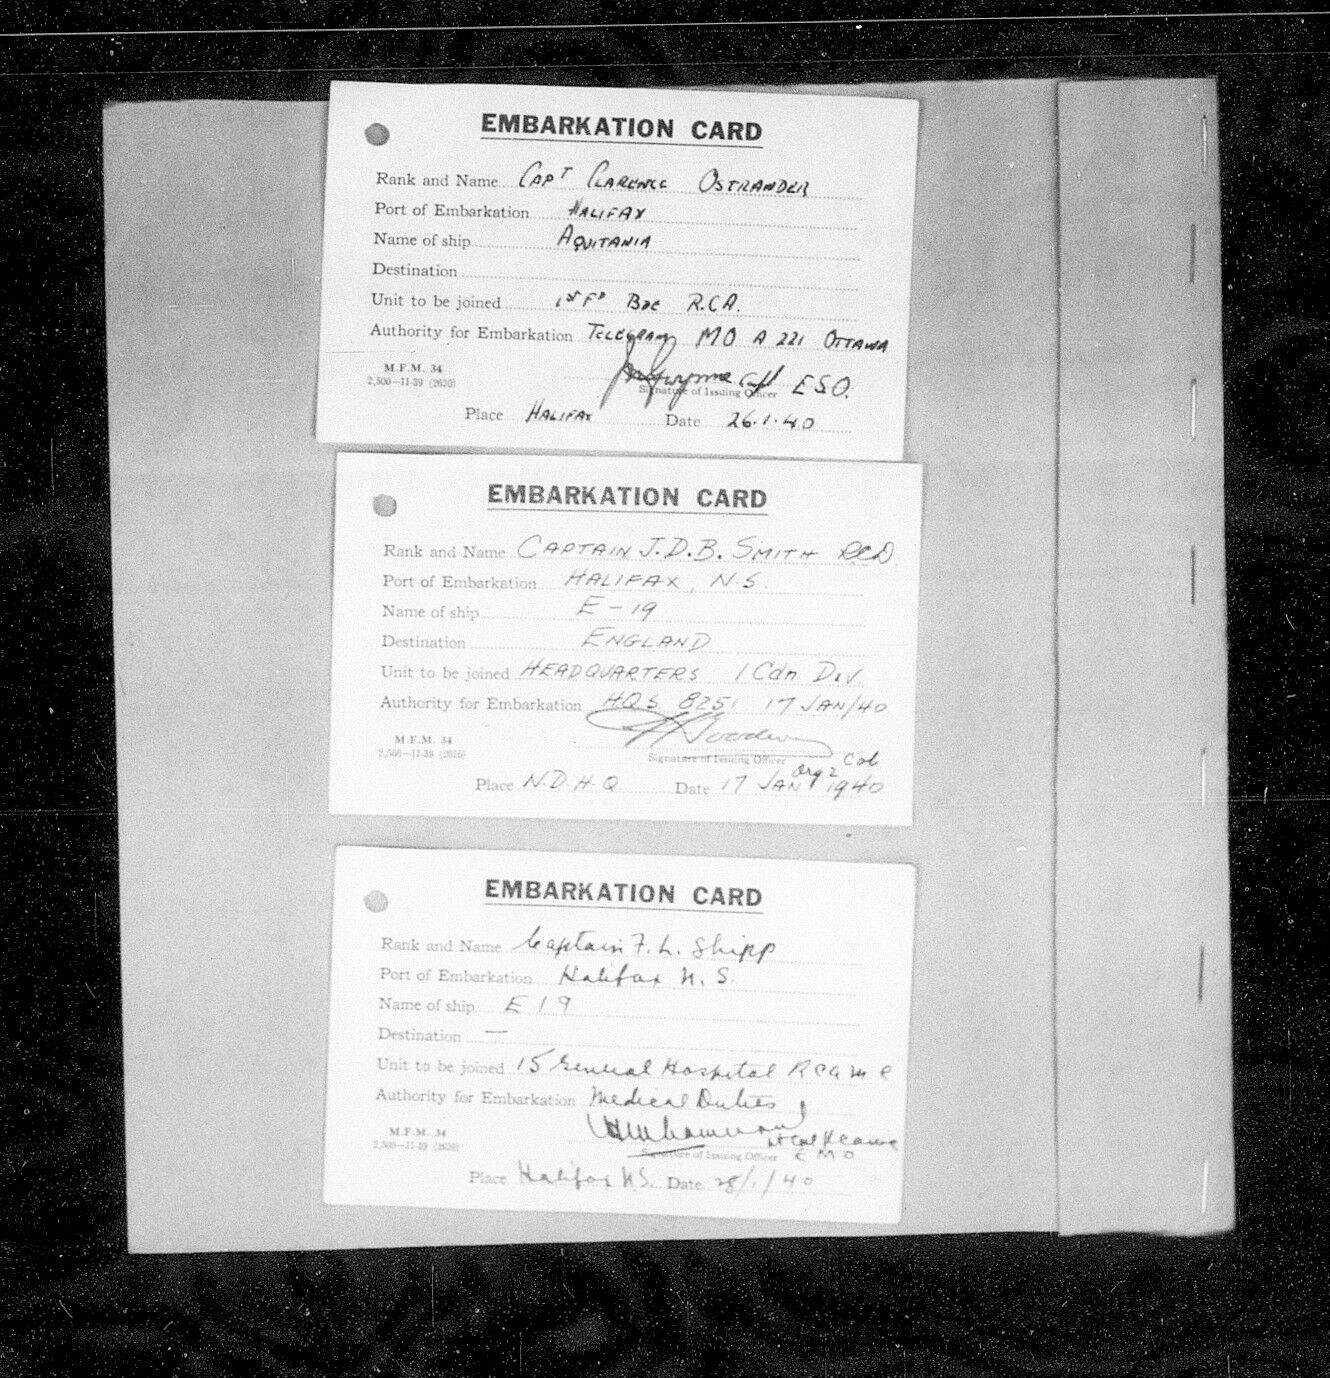 EMBARKATION CARD
Rank and Name CAPT CLARENCE OSTRANDER
Port of Embarkation HALIFAX
Name of ship AQUITANIA
Destination
Unit to be joined 1ST FD BDE R.C.A.
Authority for Embarkation TELEGRAM MO A 221 OTTAWA
M.F.M. 34
2,500—11-39 (2620)
Gwynne Capt ESO.
Signature of Issuing Officer
Place HALIFAX Date 26.1.40
EMBARKATION CARD
Rank and Name CAPTAIN J.D.B. SMITH RCD.
Port of Embarkation HALIFAX, N.S.
Name of ship E-19
Destination ENGLAND
Unit to be joined HEADQUARTERS 1 Cdn DIV.
Authority for Embarkation HQS 8251 17 JAN/40
M.F.M. 34
2,500—11-39 (2620)
Signature of Issuing Officer Col
Org 2
Place N.D.H.Q. Date 17 JAN 1940
EMBARKATION CARD
Rank and Name Captain F. L. Shipp
Port of Embarkation Halifax N. S.
Name of ship E 19
Destination —
Unit to be joined 15 General Hospital RCAMC
Authority for Embarkation Medical Duties
M.F.M. 34
2,500—11-39 (2620)
Lt Col RCAMC
Signature of Issuing Officer EMO
Place Halifax N.S. Date 28/1/40